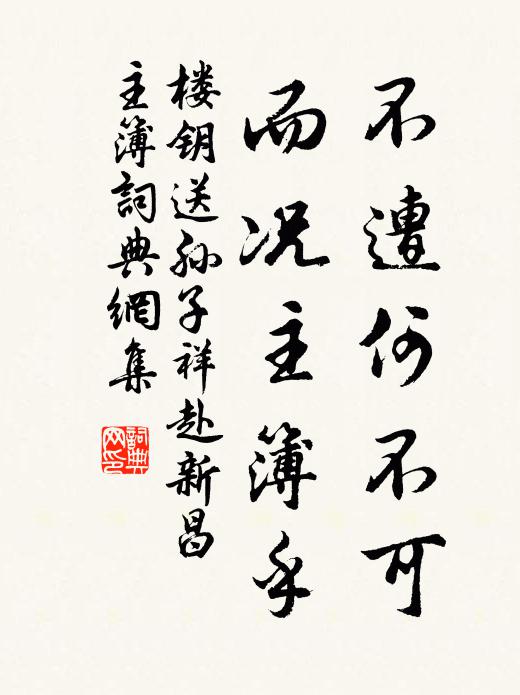 不遭何不可
而况主簿乎
楼钥送孙子祥赴新昌
主簿詞典網集
詞典网印